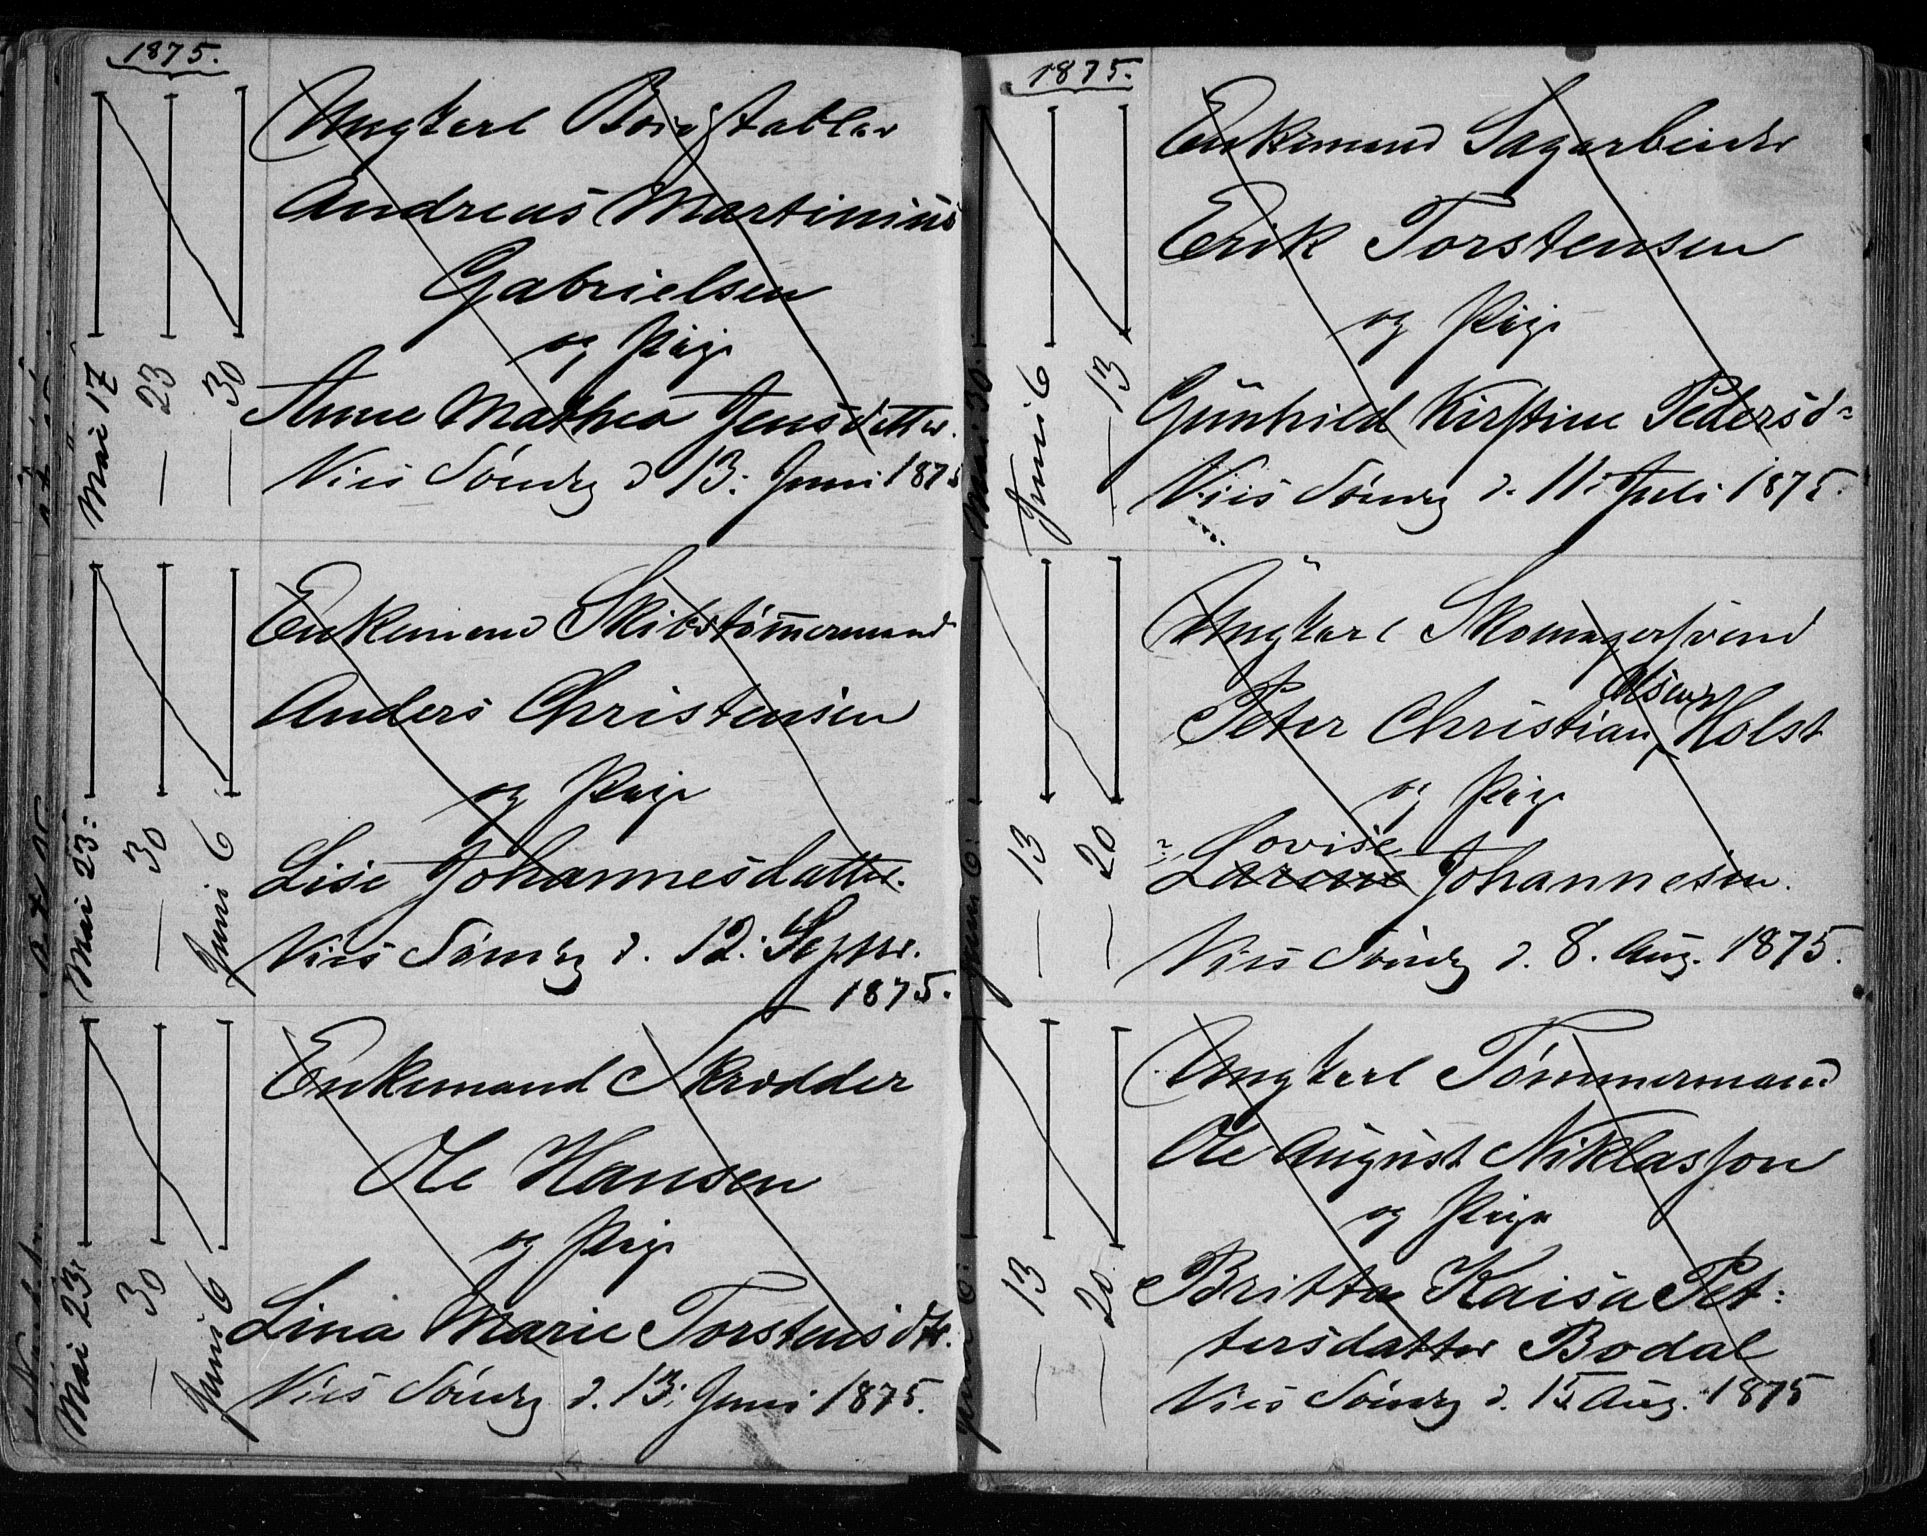 1875.
Ungkarl Bordstabler
Andreas Martinius
Gabrielsen
og Pige
Anne Mathea Jensdatter.
Vies Søndag d 13. Juni 1875
Mai 17
— 23
— 30
Enkemand Skibstømmermand
Anders Christensen
og Pige
Lise Johannesdatter.
Vies Søndag d. 12. Septbr.
1875.
Mai 23.
— 30
Juni 6
Enkemand Skrædder
Ole Hansen
og Pige
Lina Marie Torstensdtr.
Vies Søndag d. 13. Juni 1875.
Mai 23.
— 30
Juni 6
1875.
Enkemand Sagarbeider
Erik Torstensen
og Pige
Gunhild Kirstine Pedersd=
Vies Søndag d. 11. Juli 1875.
Mai 30.
Juni 6
— 13
Ungkarl Skomagersvend
Peter Christian Olsen Holst
og Pige
Lovise
Larine Johannesen.
Vies Søndag d. 8. Aug. 1875.
Juni 6.
— 13
— 20
Ungkarl Tømmermand
Ole August Niklasson
og Pige
Britta Kaisa Pet:
tersdatter Bodal
Vies Søndag d. 15 Aug. 1875
Juni 6.
— 13
— 20.